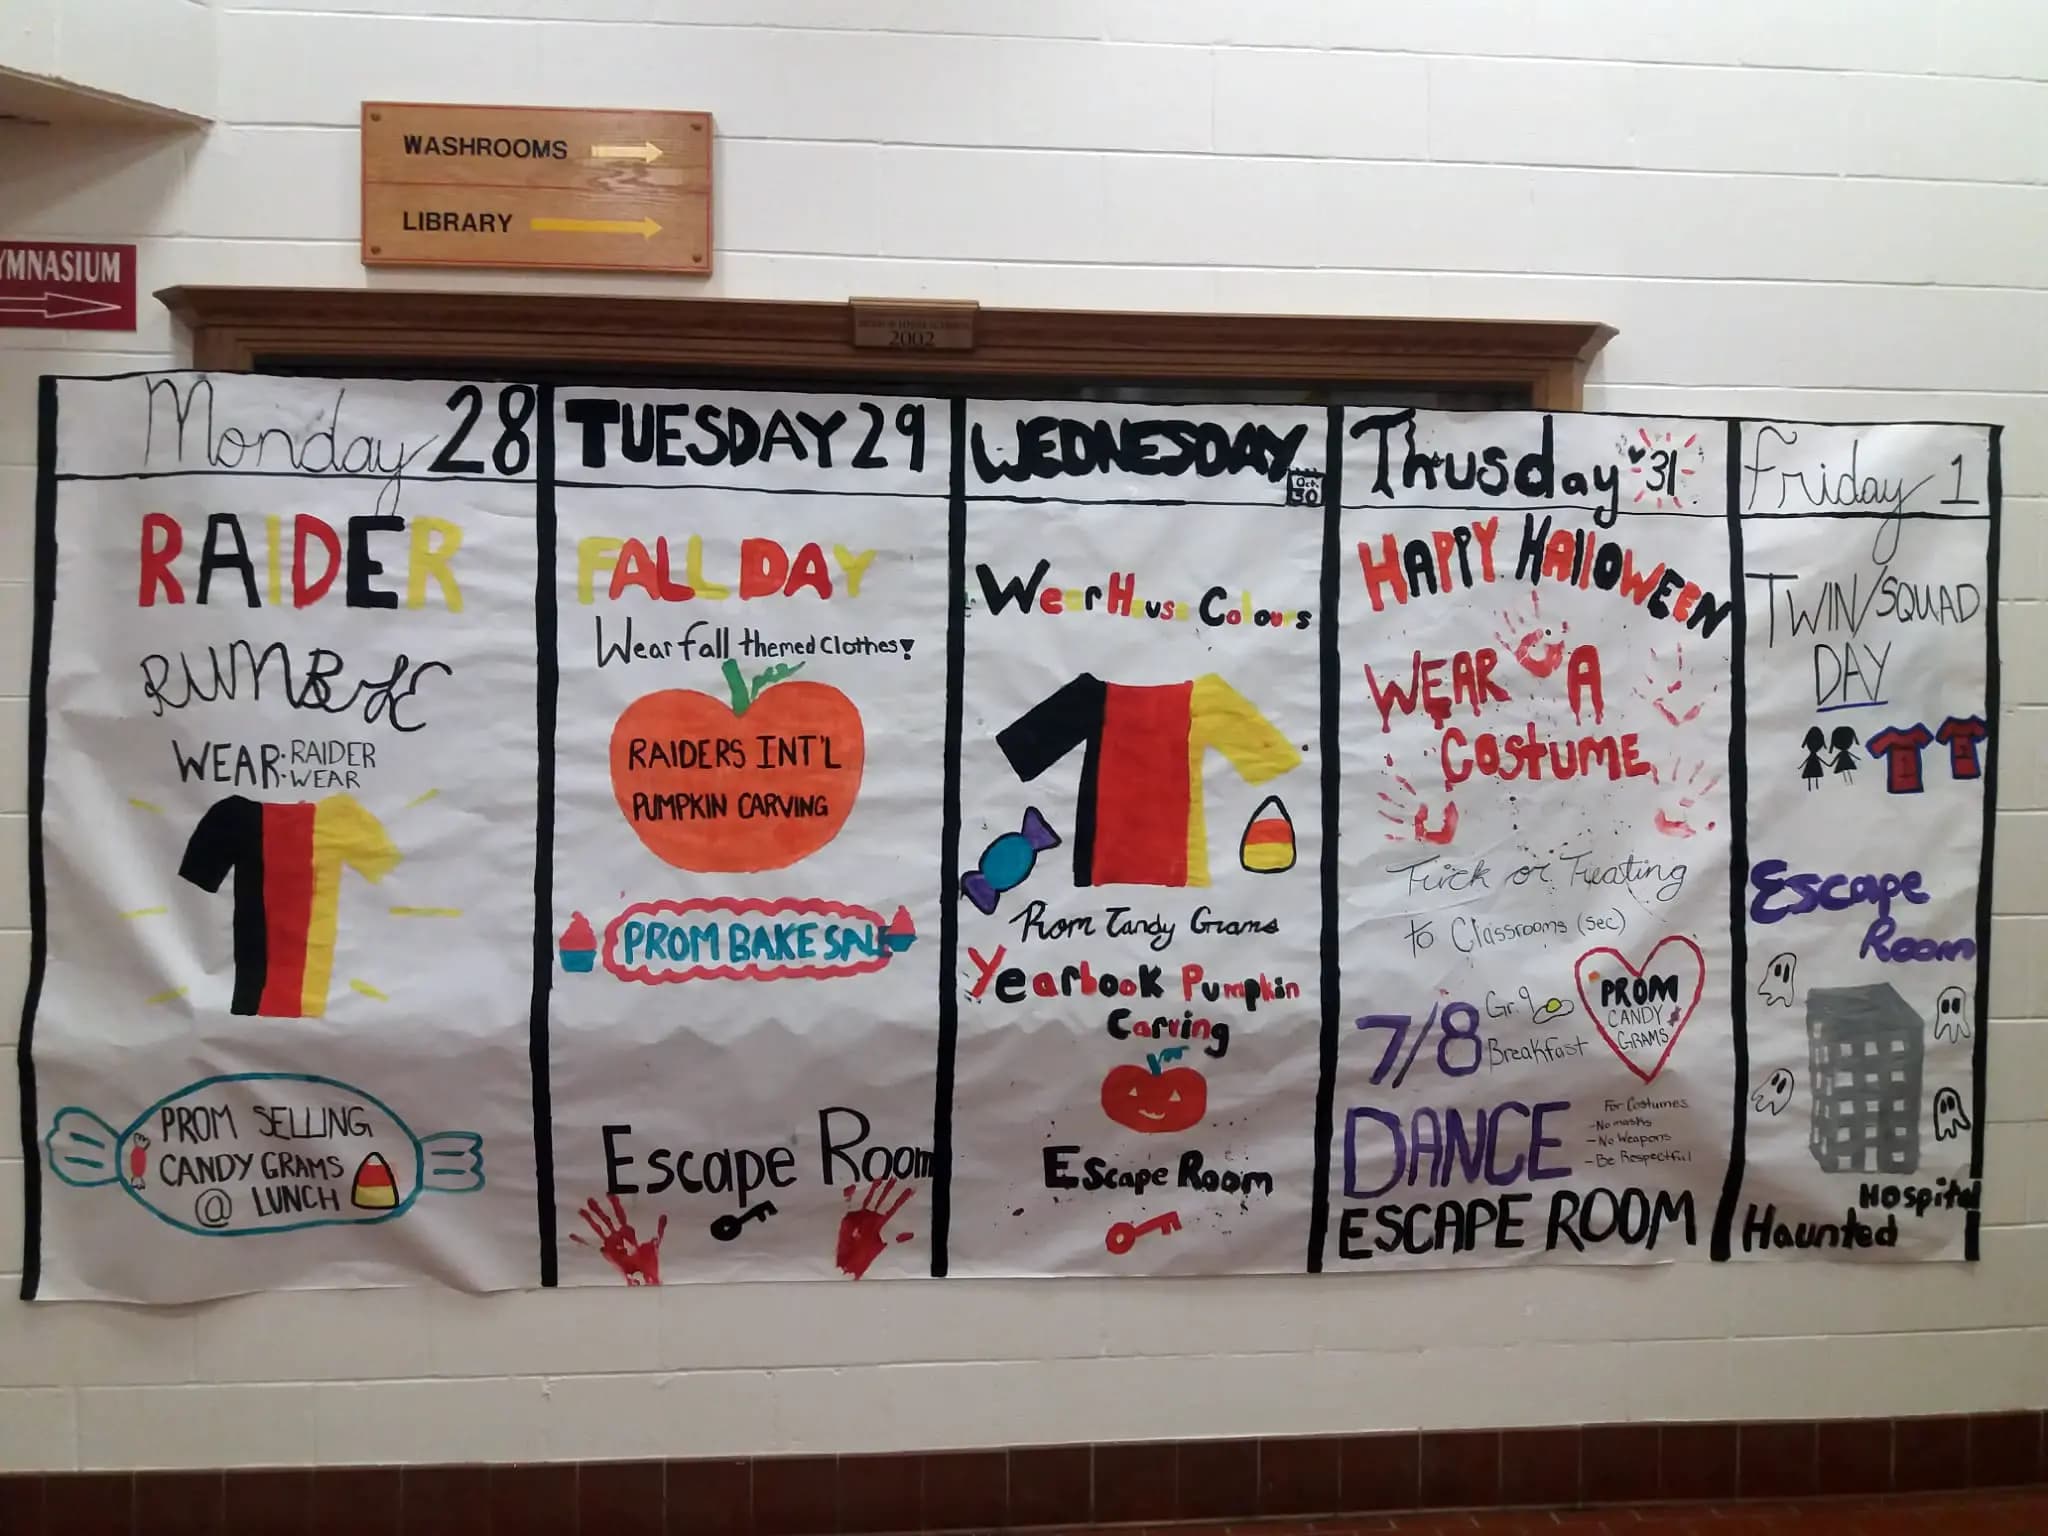 WASHROOMS
LIBRARY
YMNASIUM
2002
Monday 28
RAIDER
RUMBLE
WEAR: RAIDER
WEAR
PROM SELLING
CANDY GRAMS
@ LUNCH
TUESDAY 29
FALL DAY
Wear fall themed Clothes!
RAIDERS INT'L
PUMPKIN CARVING
PROM BAKE SALE
Escape Room
WEDNESDAY
Oct.
30
Wear House Colours
Prom Candy Grams
Yearbook Pumpkin
Carving
Escape Room
Thusday 31
HAPPY HAllOWEEN
WEAR A
COSTUME
Trick or Treating
to Classrooms (sec)
7/8
Gr. 9
Breakfast
PROM
CANDY
GRAMS
DANCE
For Costumes
-No masks
-No Weapons
-Be Respectful
ESCAPE ROOM
Friday 1
TWIN/SQUAD
DAY
Escape
Room
Hospital
Haunted